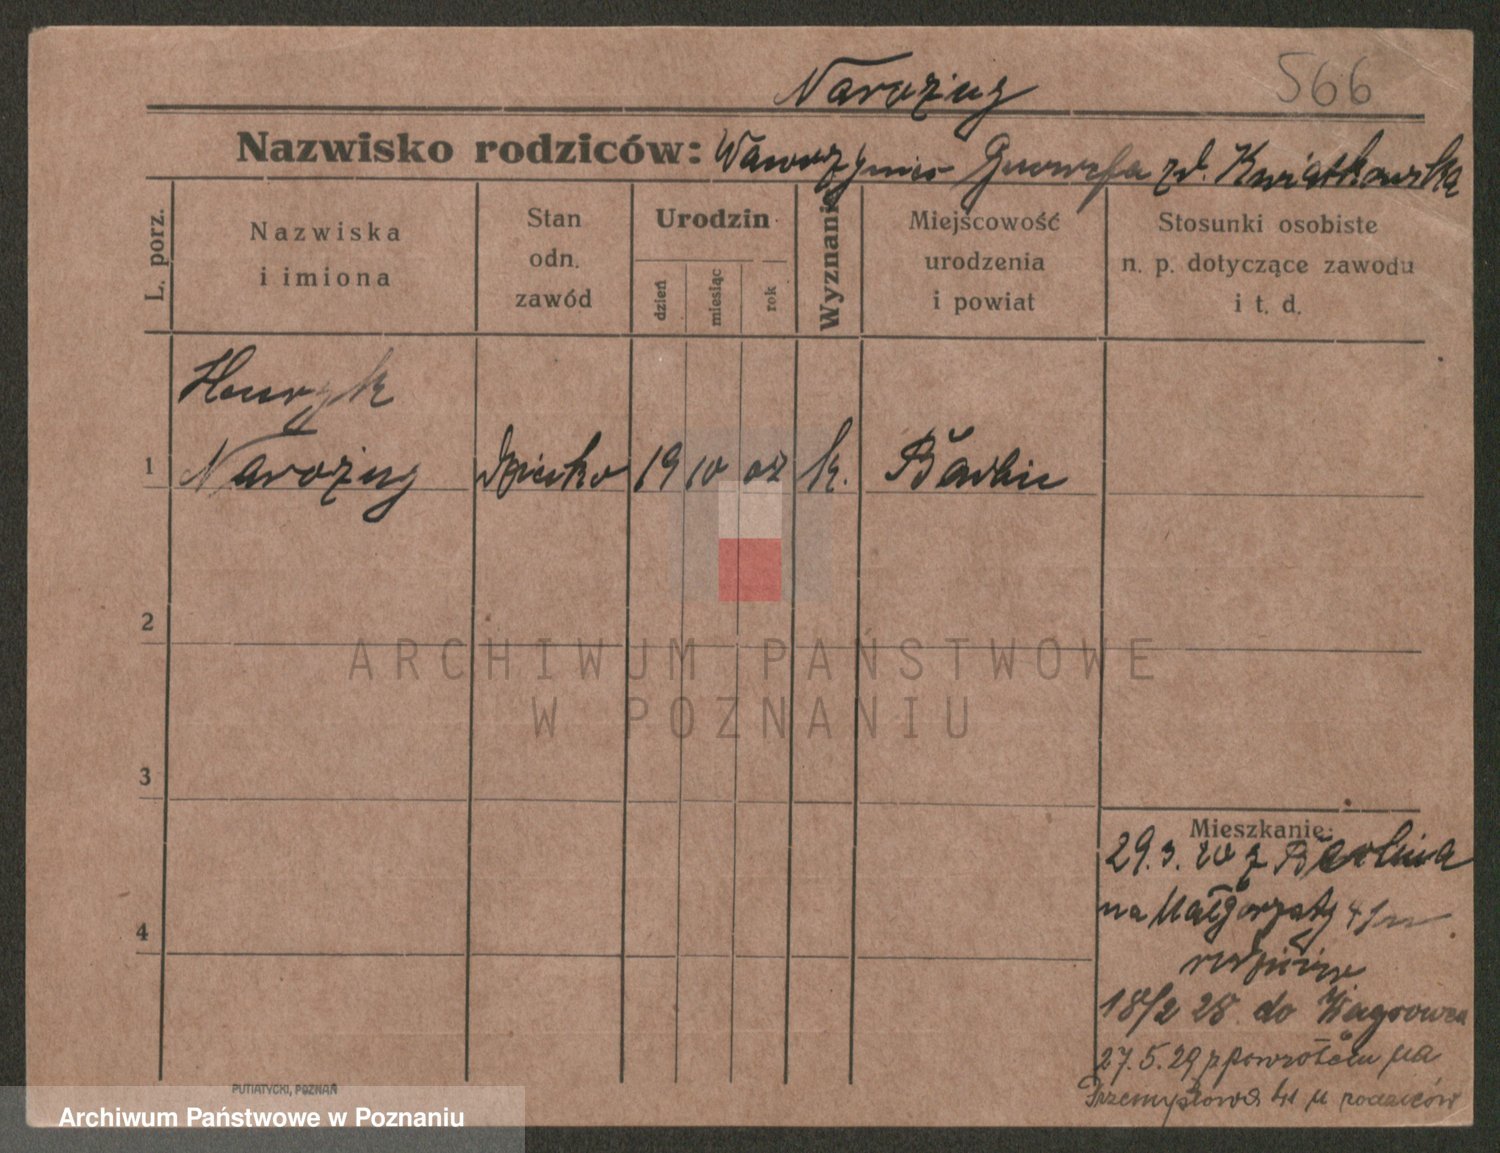 566
Narożny
Nazwisko rodziców: Wawrzyniec Gnowefa zd. Kwiatkowska
L. porz.
Nazwiska
i imiona
Stan
odn.
zawód
Urodzin
dzień
miesiąc
rok
Wyznanie
Miejscowość
urodzenia
i powiat
Stosunki osobiste
n. p. dotyczące zawodu
i t. d.
Henryk
1 Narożny dziecko 19 10 02 k. Berlin
2
ARCHIWUM PAŃSTWOWE
W POZNANIU
3
Mieszkanie:
29.3.20 z Berlina
na Małgorzaty
4
18/2 28 do Wągrowca
27.5.29 z powrotem na
Przemysłowa u rodziców
PUTIATYCKI, POZNAŃ
Archiwum Państwowe w Poznaniu